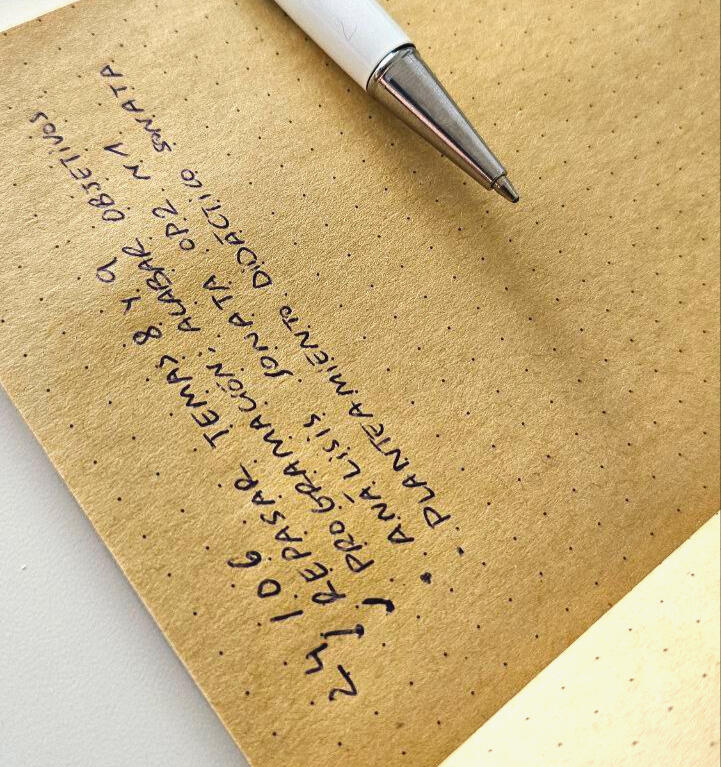 24/06
REPASAR TEMAS 8 Y 9
PROGRAMACIÓN, ACABAR OBJETIVOS
• ANÁLISIS SONATA OP2 N1
• PLANTEAMIENTO DIDÁCTICO SONATA